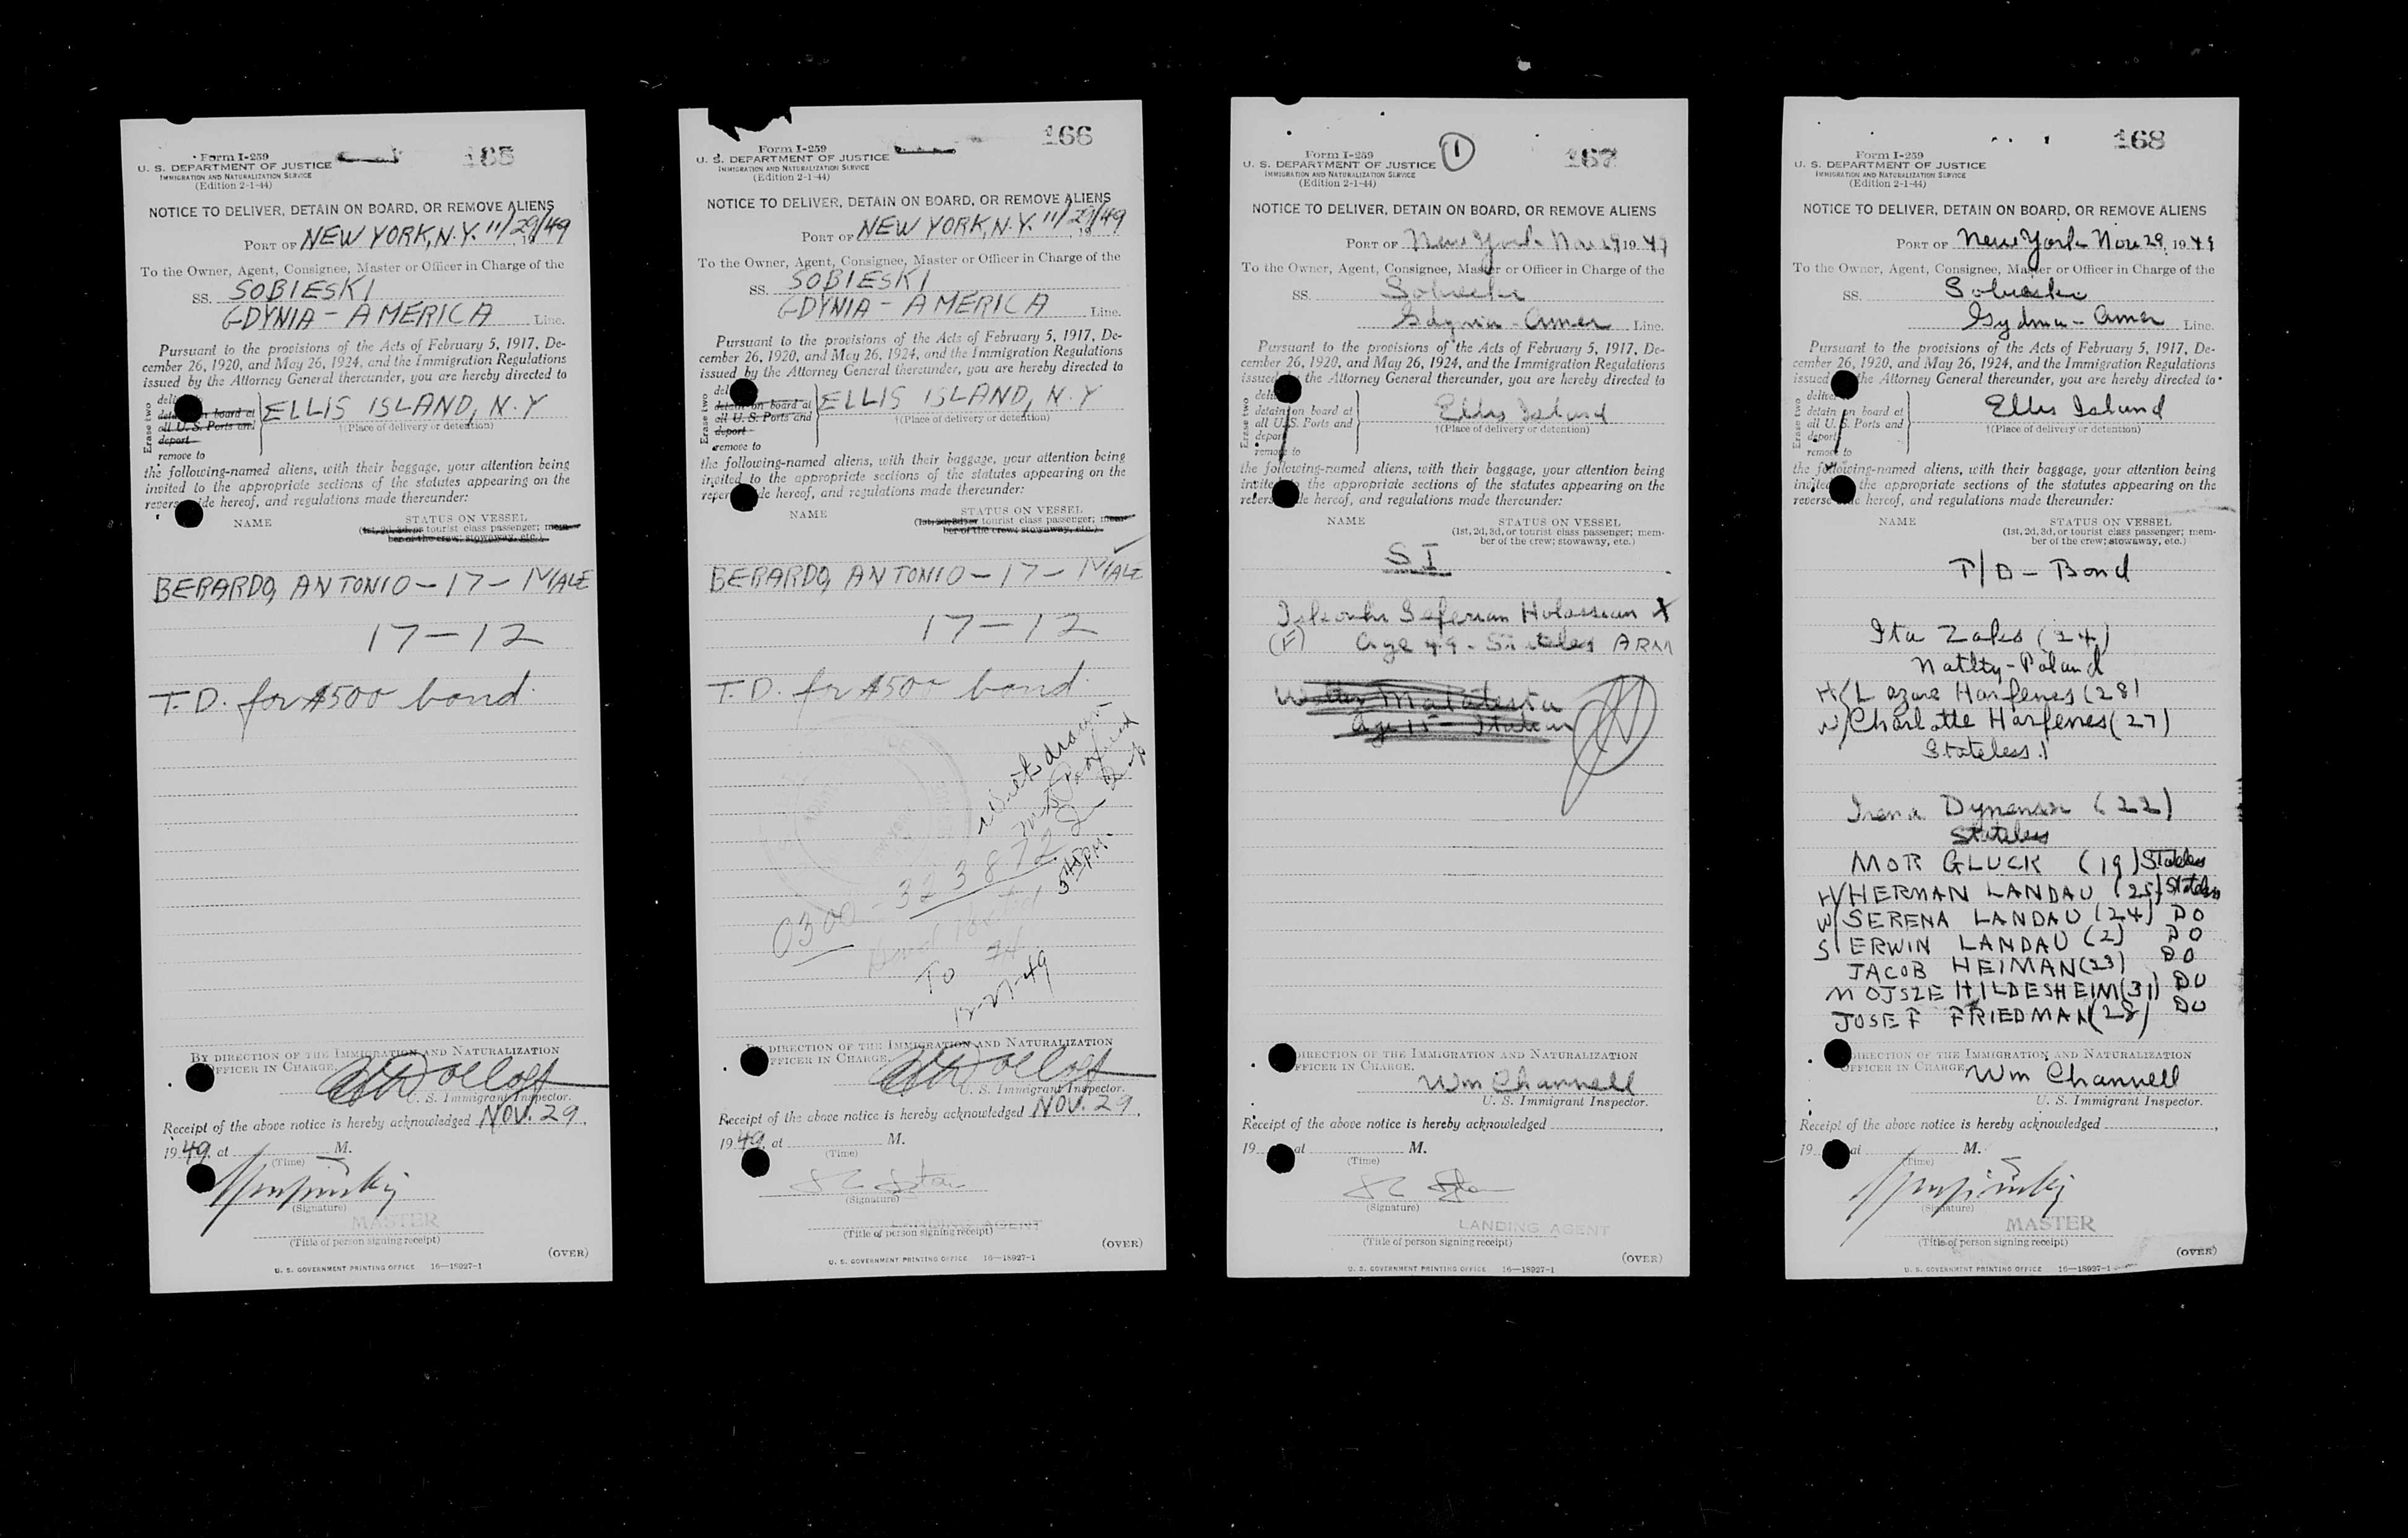 Form I-259
U. S. DEPARTMENT OF JUSTICE
IMMIGRATION AND NATURALIZATION SERVICE
(Edition 2-1-44)
165
NOTICE TO DELIVER, DETAIN ON BOARD, OR REMOVE ALIENS
PORT OF NEW YORK, N.Y. 11/29/49
To the Owner, Agent, Consignee, Master or Officer in Charge of the
SS. SOBIESKI
GDYNIA - AMERICA Line.
Pursuant to the provisions of the Acts of February 5, 1917, De-
cember 26, 1920, and May 26, 1924, and the Immigration Regulations
issued by the Attorney General thereunder, you are hereby directed to
Erase two
on board at
all U. S. Ports and
deport
remove to
ELLIS ISLAND, N.Y
†(Place of delivery or detention)
the following-named aliens, with their baggage, your attention being
invited to the appropriate sections of the statutes appearing on the
reverse side hereof, and regulations made thereunder:
NAME
STATUS ON VESSEL
(1st, 2d, 3d, or tourist class passenger; mem-
ber of the crew; stowaway, etc.)
BERARDO, ANTONIO - 17 - MALE
17-12
T.D. for $500 bond.
BY DIRECTION OF THE IMMIGRATION AND NATURALIZATION
OFFICER IN CHARGE.
U. S. Immigrant Inspector.
Receipt of the above notice is hereby acknowledged NOV. 29,
1949, at M.
(Time)
(Signature)
MASTER
(Title of person signing receipt)
(OVER)
U. S. GOVERNMENT PRINTING OFFICE 16—18927-1
Form I-259
U. S. DEPARTMENT OF JUSTICE
IMMIGRATION AND NATURALIZATION SERVICE
(Edition 2-1-44)
166
NOTICE TO DELIVER, DETAIN ON BOARD, OR REMOVE ALIENS
PORT OF NEW YORK, N.Y. 11/29/49
To the Owner, Agent, Consignee, Master or Officer in Charge of the
SS. SOBIESKI
GDYNIA - AMERICA Line.
Pursuant to the provisions of the Acts of February 5, 1917, De-
cember 26, 1920, and May 26, 1924, and the Immigration Regulations
issued by the Attorney General thereunder, you are hereby directed to
Erase two
detain on board at
all U. S. Ports and
deport
remove to
ELLIS ISLAND, N.Y
†(Place of delivery or detention)
the following-named aliens, with their baggage, your attention being
invited to the appropriate sections of the statutes appearing on the
reverse side hereof, and regulations made thereunder:
NAME
STATUS ON VESSEL
(1st, 2d, 3d, or tourist class passenger; mem-
ber of the crew; stowaway, etc.)
BERARDO, ANTONIO - 17 - MALE
17-12
T.D. for $500 bond.
Withdrawn
5:45 PM.
0300-323872
To
12-27-49
BY DIRECTION OF THE IMMIGRATION AND NATURALIZATION
OFFICER IN CHARGE.
U. S. Immigrant Inspector.
Receipt of the above notice is hereby acknowledged NOV. 29,
1949, at M.
(Time)
(Signature)
LANDING AGENT
(Title of person signing receipt)
(OVER)
U. S. GOVERNMENT PRINTING OFFICE 16—18927-1
Form I-259
U. S. DEPARTMENT OF JUSTICE
IMMIGRATION AND NATURALIZATION SERVICE
(Edition 2-1-44)
1
167
NOTICE TO DELIVER, DETAIN ON BOARD, OR REMOVE ALIENS
PORT OF New York Nov 29 1949
To the Owner, Agent, Consignee, Master or Officer in Charge of the
SS. Sobieski
Gdynia - Amer Line.
Pursuant to the provisions of the Acts of February 5, 1917, De-
cember 26, 1920, and May 26, 1924, and the Immigration Regulations
issued by the Attorney General thereunder, you are hereby directed to
Erase two
detain on board at
all U. S. Ports and
deport
remove to
Ellis Island
†(Place of delivery or detention)
the following-named aliens, with their baggage, your attention being
invited to the appropriate sections of the statutes appearing on the
reverse side hereof, and regulations made thereunder:
NAME
STATUS ON VESSEL
(1st, 2d, 3d, or tourist class passenger; mem-
ber of the crew; stowaway, etc.)
SI
Seferian Holassian X
(F) Age 49 - Stateless ARM
Malatesta
Age 15 Italian
BY DIRECTION OF THE IMMIGRATION AND NATURALIZATION
OFFICER IN CHARGE.
Wm Channell
U. S. Immigrant Inspector.
Receipt of the above notice is hereby acknowledged
19 at M.
(Time)
(Signature)
LANDING AGENT
(Title of person signing receipt)
(OVER)
U. S. GOVERNMENT PRINTING OFFICE 16—18927-1
Form I-259
U. S. DEPARTMENT OF JUSTICE
IMMIGRATION AND NATURALIZATION SERVICE
(Edition 2-1-44)
168
NOTICE TO DELIVER, DETAIN ON BOARD, OR REMOVE ALIENS
PORT OF New York Nov 29, 1949
To the Owner, Agent, Consignee, Master or Officer in Charge of the
SS. Sobieski
Gydnia - Amer Line.
Pursuant to the provisions of the Acts of February 5, 1917, De-
cember 26, 1920, and May 26, 1924, and the Immigration Regulations
issued by the Attorney General thereunder, you are hereby directed to
Erase two
deliver
detain on board at
all U. S. Ports and
deport
remove to
Ellis Island
†(Place of delivery or detention)
the following-named aliens, with their baggage, your attention being
invited to the appropriate sections of the statutes appearing on the
reverse side hereof, and regulations made thereunder:
NAME
STATUS ON VESSEL
(1st, 2d, 3d, or tourist class passenger; mem-
ber of the crew; stowaway, etc.)
T/D - Bond
Ita Zakes (24)
Natlty - Poland
H/Lazare Harfenes (28)
W/Charlotte Harfenes (27)
Stateless
Irena (22)
Stateless
MOR GLUCK (19) Stateless
H/HERMAN LANDAU (25) Stateless
W/SERENA LANDAU (24) DO
S/ERWIN LANDAU (2) DO
JACOB HEIMAN (23) DO
MOJSZE HILDESHEIM (31) DO
JOSEF FRIEDMAN (28) DO
BY DIRECTION OF THE IMMIGRATION AND NATURALIZATION
OFFICER IN CHARGE.
Wm Channell
U. S. Immigrant Inspector.
Receipt of the above notice is hereby acknowledged
19 at M.
(Time)
(Signature)
MASTER
(Title of person signing receipt)
(OVER)
U. S. GOVERNMENT PRINTING OFFICE 16—18927-1